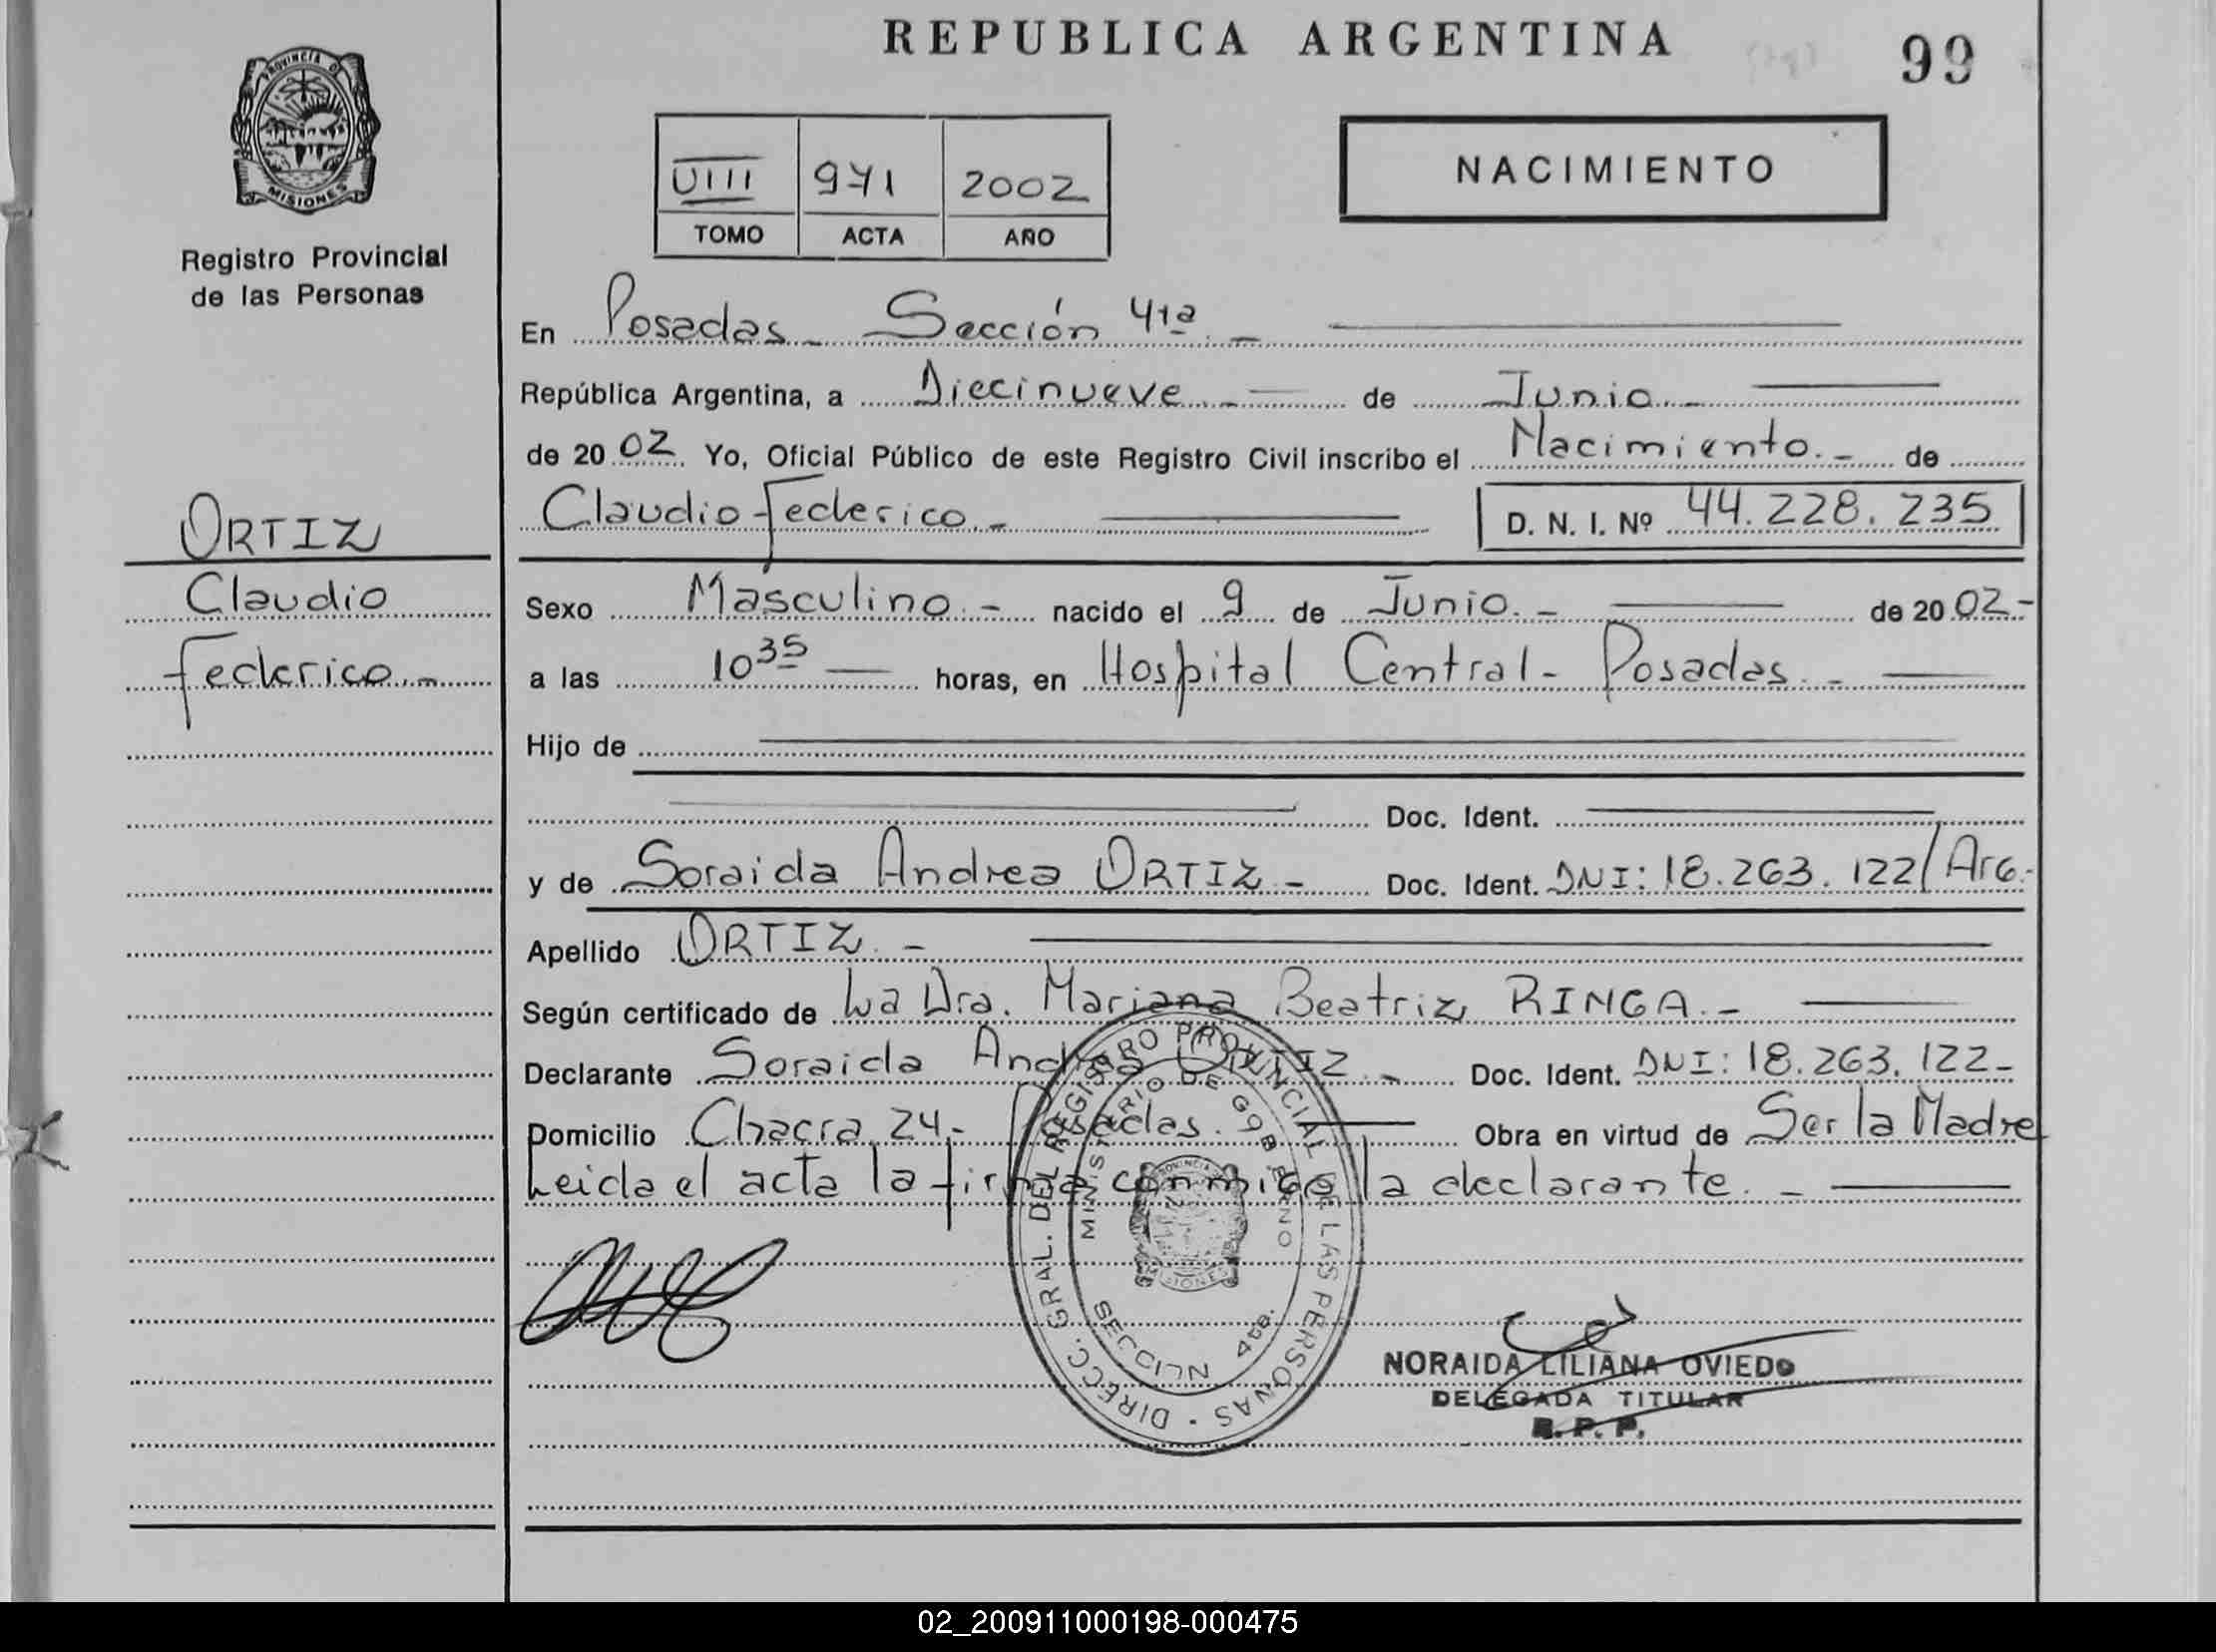 REPUBLICA ARGENTINA
99
PROVINCIA DE
MISIONES
Registro Provincial
de las Personas
VIII 971 2002
TOMO ACTA AÑO
NACIMIENTO
En Posadas - Sección 4ta. -
República Argentina, a Diecinueve. - de Junio. -
de 20 02 Yo, Oficial Público de este Registro Civil inscribo el Nacimiento. - de
Claudio Federico. - D. N. I. Nº 44.228.235
ORTIZ
Claudio
Federico. -
Sexo Masculino. - nacido el 9 de Junio. - de 20 02. -
a las 10 35 horas, en Hospital Central - Posadas. -
Hijo de
Doc. Ident.
y de Soraida Andrea ORTIZ - Doc. Ident. DNI: 18.263.122/Arg. -
Apellido ORTIZ. -
Según certificado de La Dra. Mariana Beatriz RINGA. -
Declarante Soraida Andrea ORTIZ. - Doc. Ident. DNI: 18.263.122 -
Domicilio Chacra 24 - Posadas. Obra en virtud de Ser la Madre
Leida el acta la firma conmigo la declarante. -
DIRECC. GRAL. DEL REGISTRO PROVINCIAL DE LAS PERSONAS
MINISTERIO DE GOBIERNO
SECCION 4ta.
NORAIDA LILIANA OVIEDO
DELEGADA TITULAR
R. P. P.
02_200911000198-000475